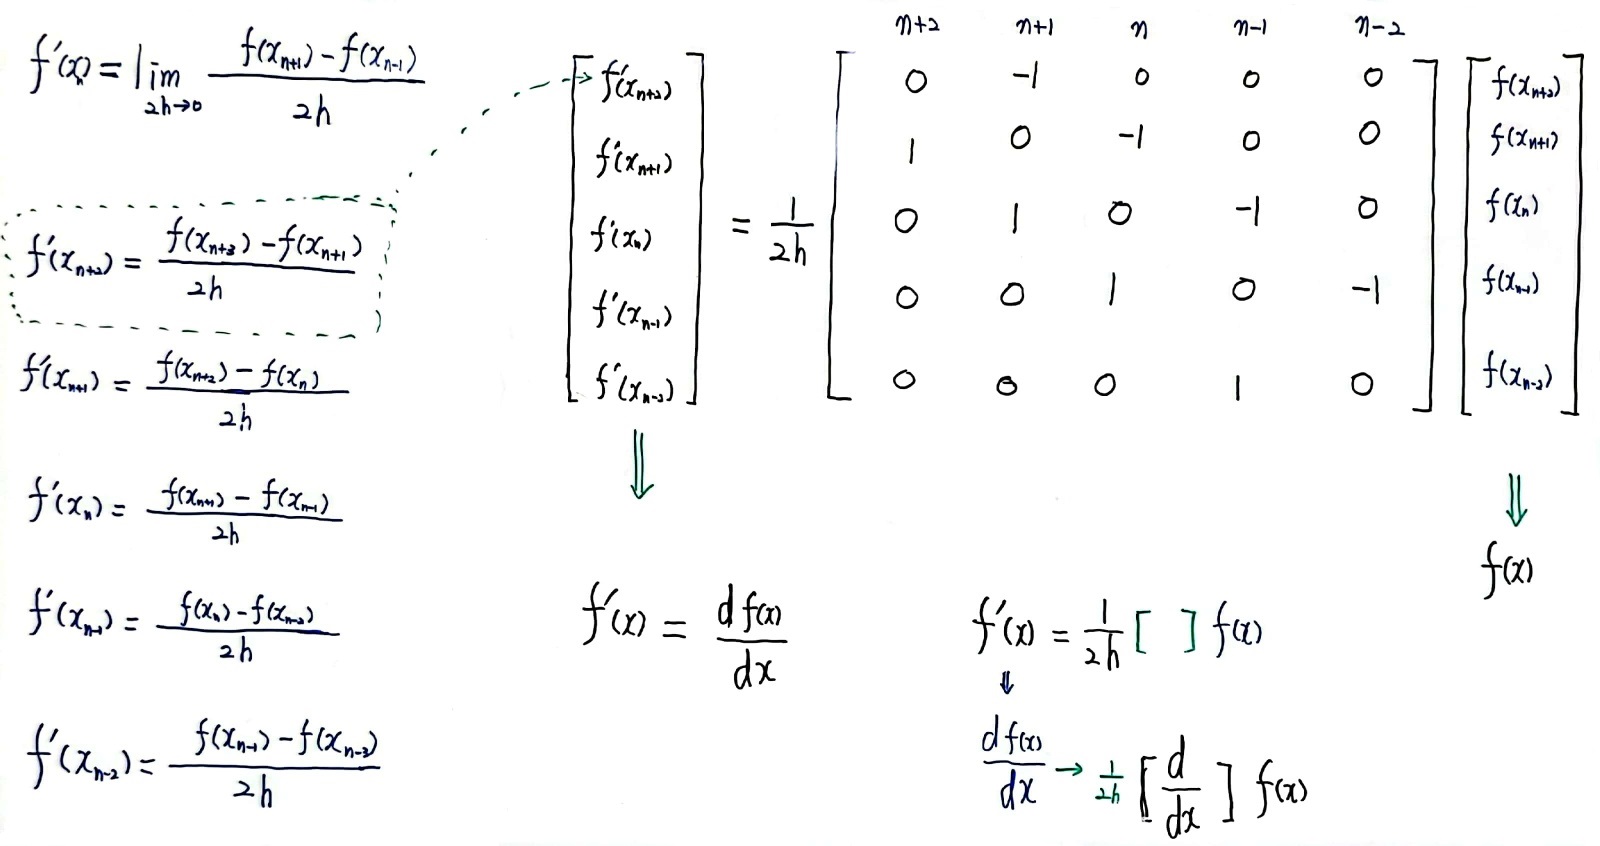 f'(xₙ) = lim_{2h→0} (f(xₙ₊₁) − f(xₙ₋₁)) / 2h
f'(xₙ₊₂) = (f(xₙ₊₃) − f(xₙ₊₁)) / 2h
f'(xₙ₊₁) = (f(xₙ₊₂) − f(xₙ)) / 2h
f'(xₙ) = (f(xₙ₊₁) − f(xₙ₋₁)) / 2h
f'(xₙ₋₁) = (f(xₙ) − f(xₙ₋₂)) / 2h
f'(xₙ₋₂) = (f(xₙ₋₁) − f(xₙ₋₃)) / 2h
n+2 n+1 n n-1 n-2
[ f'(xₙ₊₂) ] [ 0 -1 0 0 0 ] [ f(xₙ₊₂) ]
[ f'(xₙ₊₁) ] [ 1 0 -1 0 0 ] [ f(xₙ₊₁) ]
[ f'(xₙ) ] = 1/2h [ 0 1 0 -1 0 ] [ f(xₙ) ]
[ f'(xₙ₋₁) ] [ 0 0 1 0 -1 ] [ f(xₙ₋₁) ]
[ f'(xₙ₋₂) ] [ 0 0 0 1 0 ] [ f(xₙ₋₂) ]
⇓ ⇓
f(x)
f'(x) = d f(x) / dx
f'(x) = 1/2h [ ] f(x)
⇓
d f(x) / dx → 1/2h [ d/dx ] f(x)